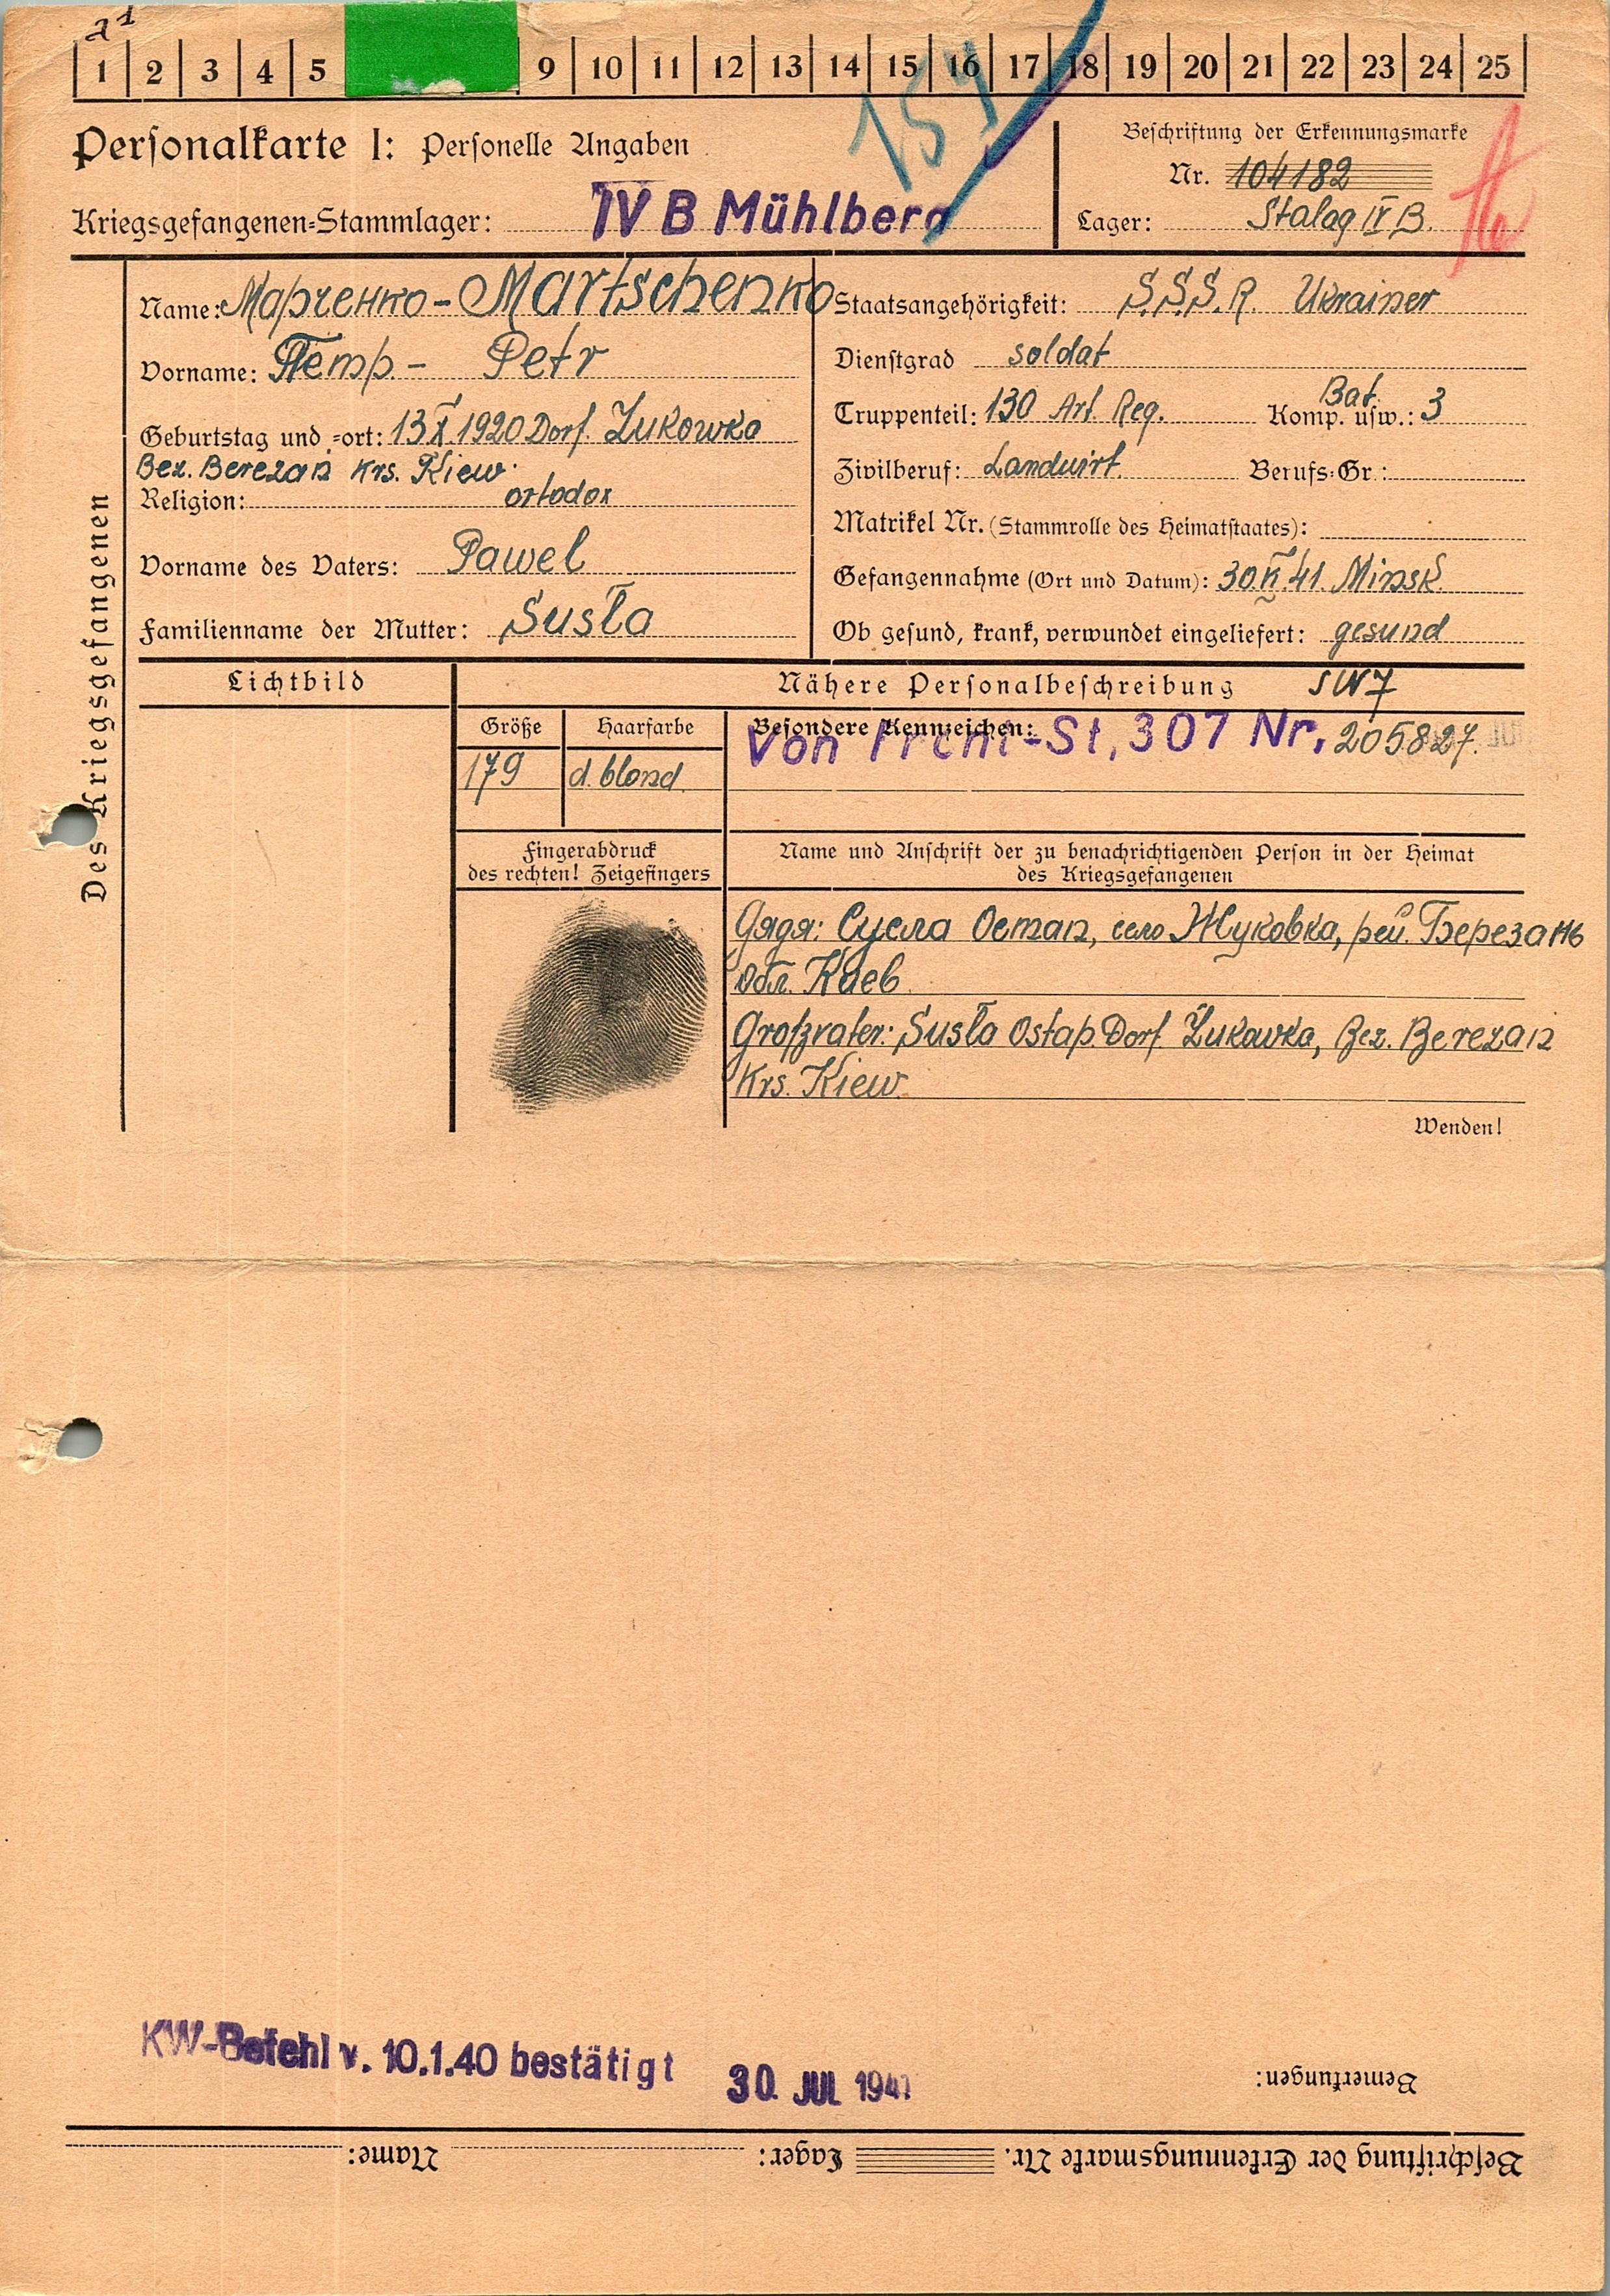 1 2 3 4 5 9 10 11 12 13 14 15 16 17 18 19 20 21 22 23 24 25
Personalkarte I: Personelle Angaben
Beschriftung der Erkennungsmarke
Nr. 104182
Kriegsgefangenen-Stammlager: IV B Mühlberg
Lager: Stalag IV B.
Des Kriegsgefangenen
Name: Марченко - Martschenko
Vorname: Петр - Petr
Geburtstag und -ort: 13 X. 1920 Dorf. Żukowka
Bez. Berezan Krs. Kiew.
Religion: ortodox
Vorname des Vaters: Pawel
Familienname der Mutter: Susła
Staatsangehörigkeit: S.S.S.R. Ukrainer
Dienstgrad soldat
Truppenteil: 130 Art. Reg. Komp. usw.: Bat. 3
Zivilberuf: Landwirt. Berufs-Gr.:
Matrikel Nr. (Stammrolle des Heimatstaates):
Gefangennahme (Ort und Datum): 30.VI.41. Minsk.
Ob gesund, krank, verwundet eingeliefert: gesund
Lichtbild
Nähere Personalbeschreibung
Größe
179
Haarfarbe
d. blond.
Besondere Kennzeichen:
Von Front-St, 307 Nr. 205827.
Fingerabdruck
des rechten! Zeigefingers
Name und Anschrift der zu benachrichtigenden Person in der Heimat
des Kriegsgefangenen
Дядя: Сусла Остап, село Жуковка, рей. Березань
обл. Киев
Großvater: Susła Ostap. Dorf Żukowka, Bez. Berezan
Krs. Kiew.
Wenden!
KW-Befehl v. 10.1.40 bestätigt 30. JUL 1941
Bemerkungen:
Beschriftung der Erkennungsmarke Nr. Lager: Name: